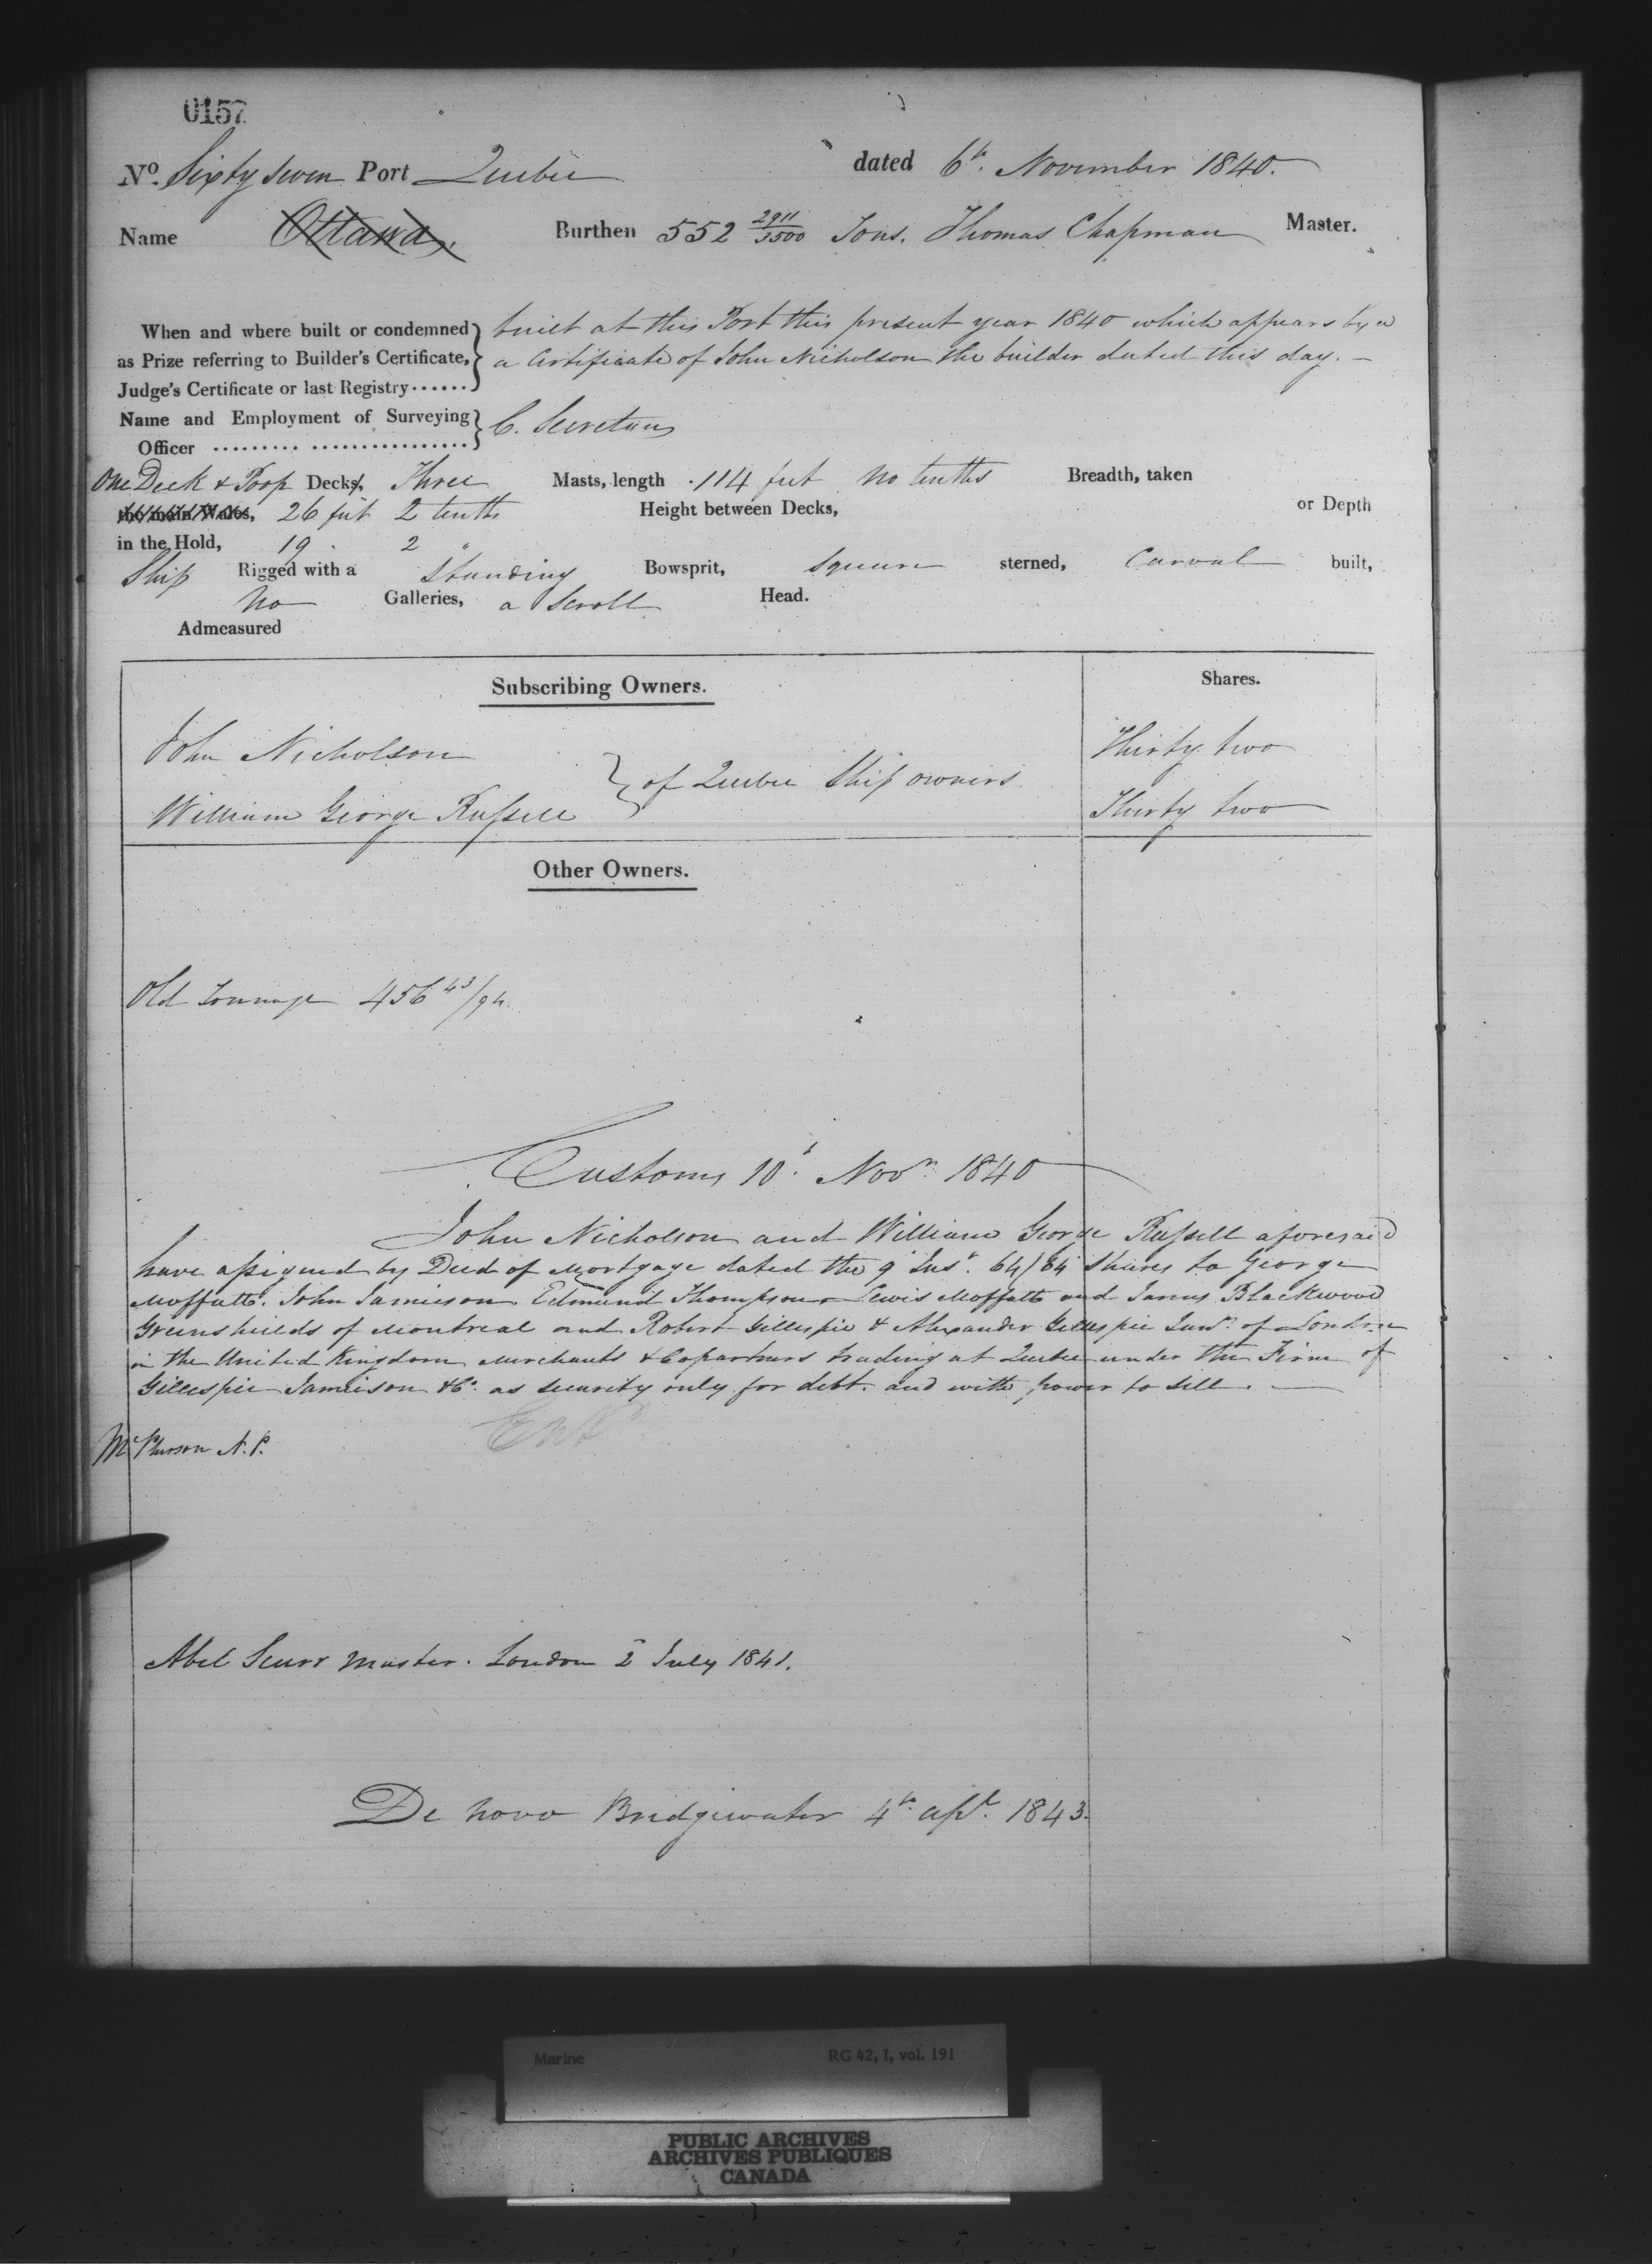 0157
No. Sixty seven Port Quebec dated 6th. November 1840.
Name Ottawa, Burthen 552 2911/3500 Tons. Thomas Chapman Master.
When and where built or condemned } built at this Port this present year 1840 which appears by a
as Prize referring to Builder's Certificate, } a Certificate of John Nicholson the builder dated this day. —
Judge's Certificate or last Registry ......
Name and Employment of Surveying } C. Secretan
Officer ......... ................
One Deck & Poop Decks, Three Masts, length 114 feet no tenths Breadth, taken
the main Wales, 26 feet 2 tenths Height between Decks, or Depth
in the Hold, 19 . 2 "
Ship Rigged with a Standing Bowsprit, Square sterned, Carval built,
No Galleries, a Scroll Head.
Admeasured
Subscribing Owners. Shares.
John Nicholson Thirty two
} of Quebec Ship owners.
William George Russell Thirty two
Other Owners.
Old Tonnage 456 43/94.
Customs 10t. Novr. 1840
John Nicholson and William George Russell aforesaid
have assigned by Deed of Mortgage dated the 9 Inst. 64/64 Shares to George
Moffatt. John Jamieson Edmund Thompson Lewis Moffatt and James Blackwood
Greenshields of Montreal and Robert Gillespie & Alexander Gillespie Junr. of London
in the United Kingdom Merchants & Copartners trading at Quebec under the Firm of
Gillespie Jamieson & Co. as security only for debt. and with power to sell. —
McPherson N.P.
Abel Scurr Master. London 2 July 1841.
De novo Bridgewater 4th. Apl. 1843.
Marine RG 42, I, vol. 191
PUBLIC ARCHIVES
ARCHIVES PUBLIQUES
CANADA